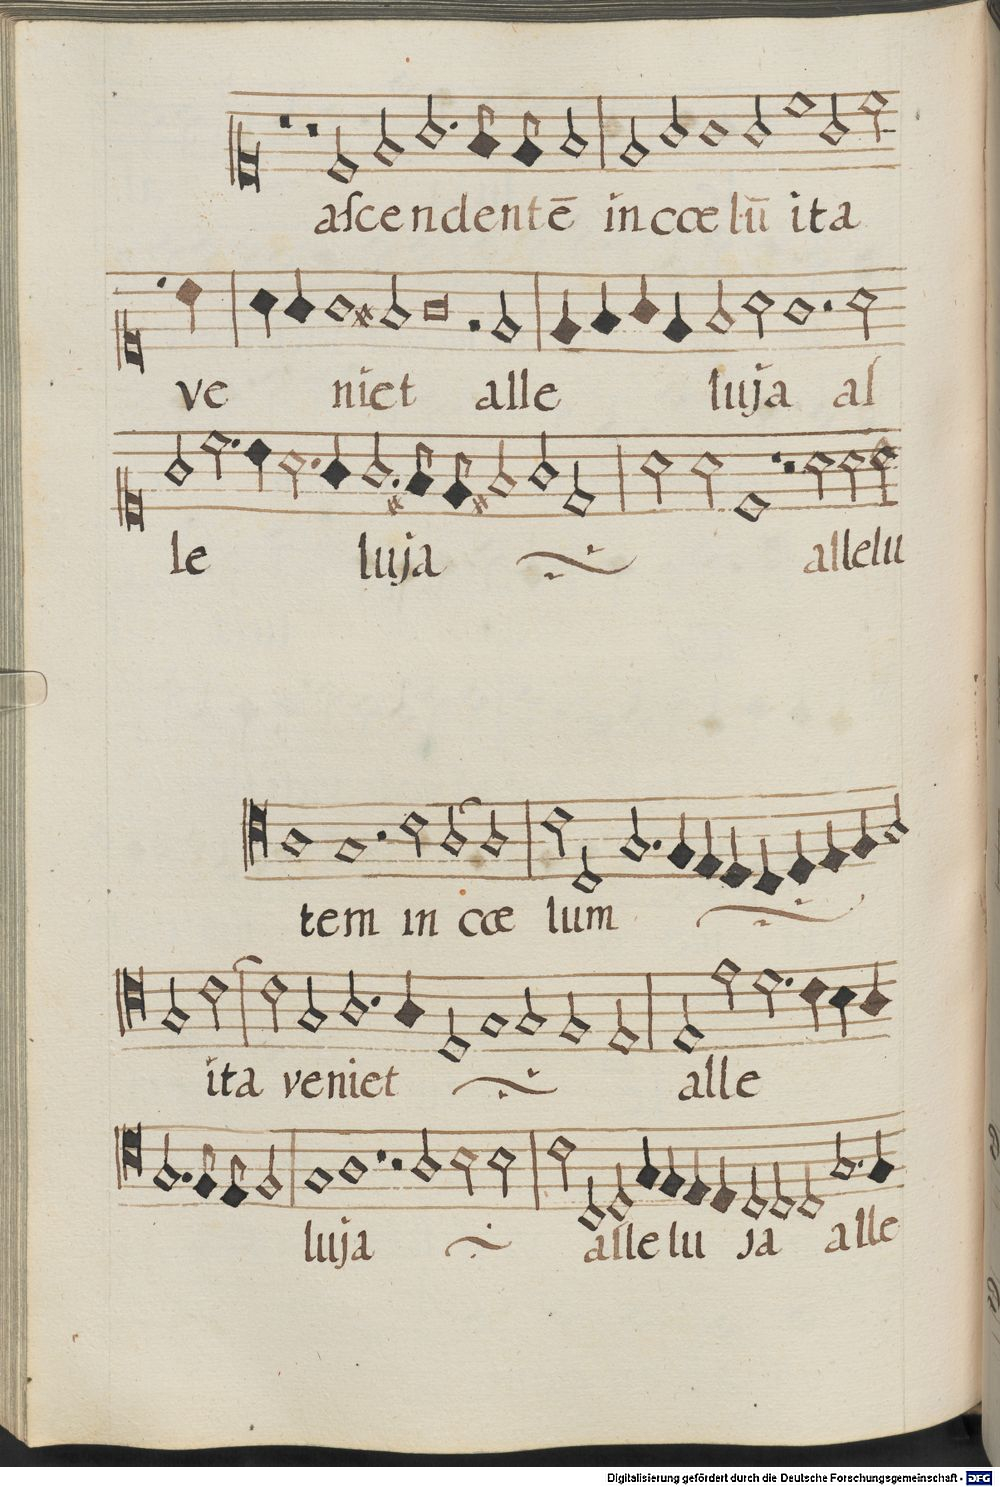 ascendentē in cœlū ita
ve niet alle luja al
le luja allelu
tem in cœ lum
ita veniet alle
luja allelu ja alle
Digitalisierung gefördert durch die Deutsche Forschungsgemeinschaft - DFG